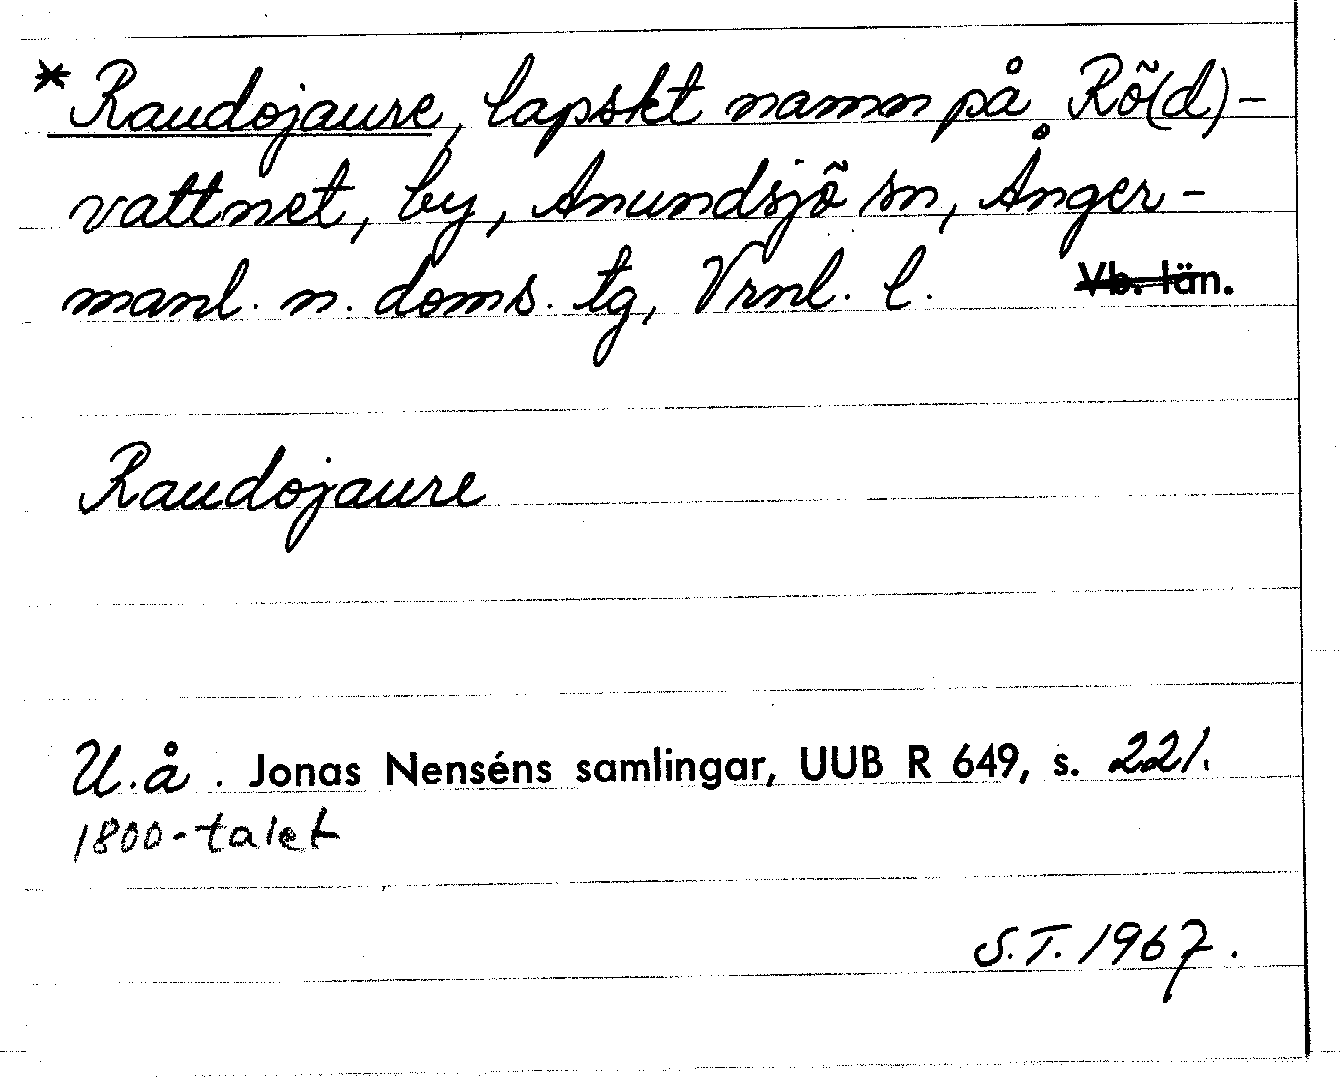 * Raudojaure, lapskt namn på Rö(d)-
vattnet, by, Anundsjö sn, Ånger-
manl. n. doms. tg, Vrnl. l. Vb. län.
Raudojaure
U.å. Jonas Nenséns samlingar, UUB R 649, s. 221.
1800-talet
S.T. 1967.